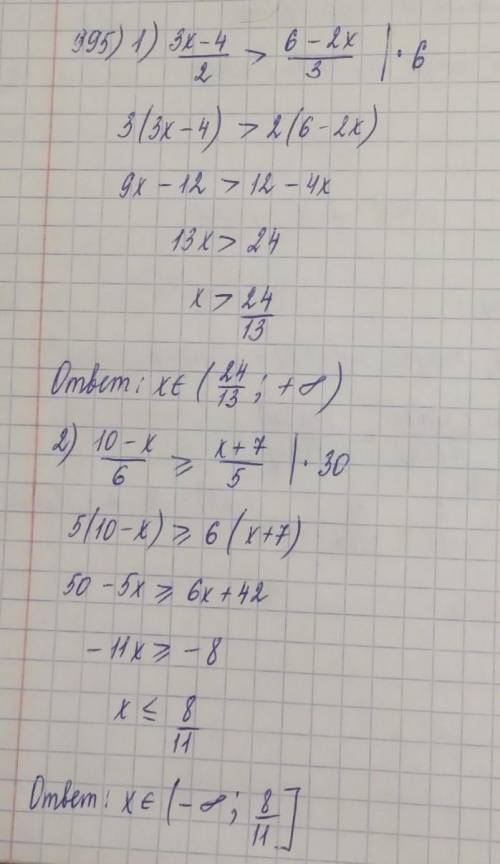 995) 1) (3x-4)/2 > (6-2x)/3 | · 6
3(3x-4) > 2(6-2x)
9x - 12 > 12 - 4x
13x > 24
x > 24/13
Ответ: x ∈ (24/13; +∞)
2) (10-x)/6 ⩾ (x+7)/5 | · 30
5(10-x) ⩾ 6(x+7)
50 - 5x ⩾ 6x + 42
-11x ⩾ -8
x ≤ 8/11
Ответ: x ∈ (-∞; 8/11]